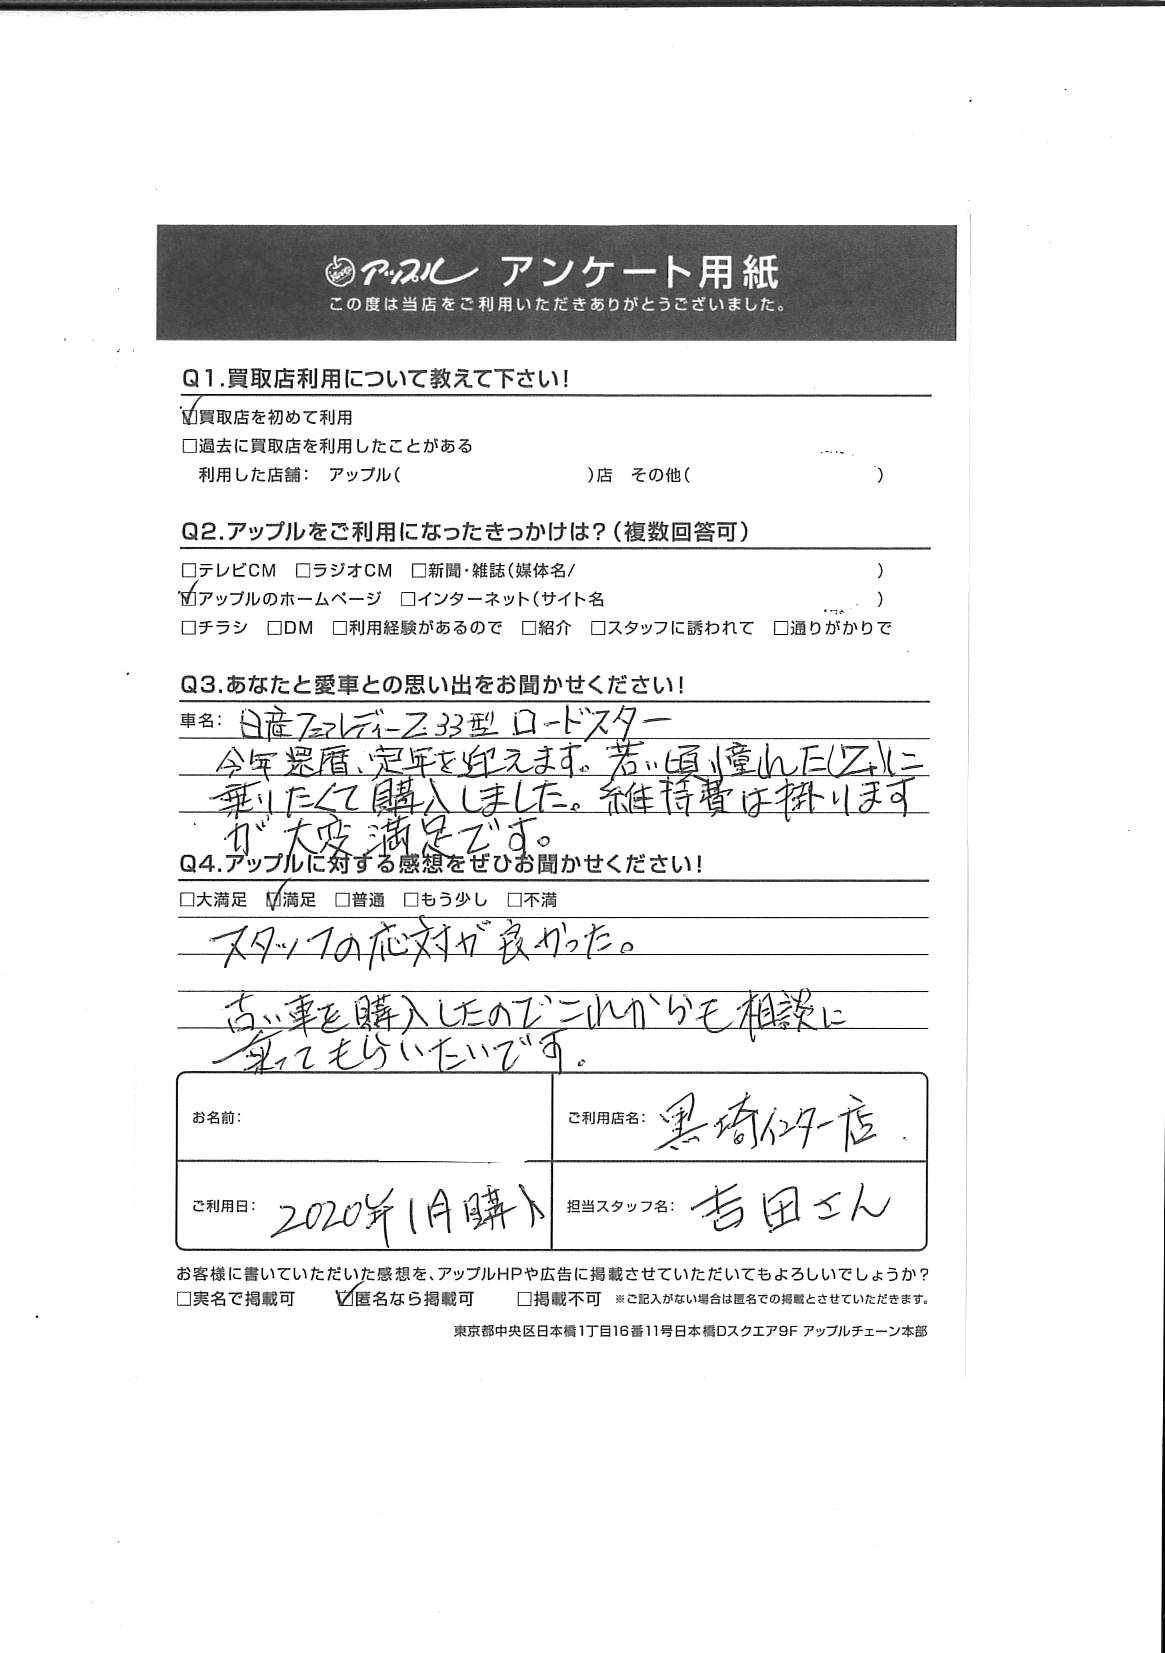 アップル アンケート用紙
この度は当店をご利用いただきありがとうございました。
Q1.買取店利用について教えて下さい!
☑買取店を初めて利用
□過去に買取店を利用したことがある
利用した店舗: アップル( )店 その他( )
Q2.アップルをご利用になったきっかけは?(複数回答可)
□テレビCM □ラジオCM □新聞・雑誌(媒体名/ )
☑アップルのホームページ □インターネット(サイト名 )
□チラシ □DM □利用経験があるので □紹介 □スタッフに誘われて □通りがかりで
Q3.あなたと愛車との思い出をお聞かせください!
車名: 日産フェアレディーZ 33型 ロードスター
今年還暦、定年を迎えます。若い頃憧れた(Z)に
乗りたくて購入しました。維持費は掛ります
が大変満足です。
Q4.アップルに対する感想をぜひお聞かせください!
□大満足 ☑満足 □普通 □もう少し □不満
スタッフの応対が良かった。
古い車を購入したのでこれからも相談に
乗ってもらいたいです。
お名前:
ご利用店名: 黒埼インター店
ご利用日: 2020年1月購入
担当スタッフ名: 吉田さん
お客様に書いていただいた感想を、アップルHPや広告に掲載させていただいてもよろしいでしょうか?
□実名で掲載可 ☑匿名なら掲載可 □掲載不可 ※ご記入がない場合は匿名での掲載とさせていただきます。
東京都中央区日本橋1丁目16番11号日本橋Dスクエア9F アップルチェーン本部